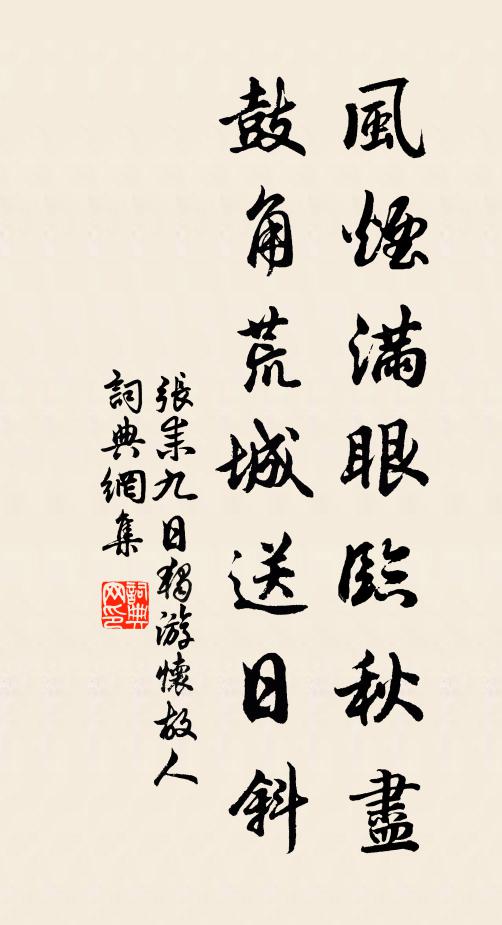 風煙滿眼臨秋盡
鼓角荒城送日斜
張耒九日獨游懷故人
詞典網集
詞典
网印